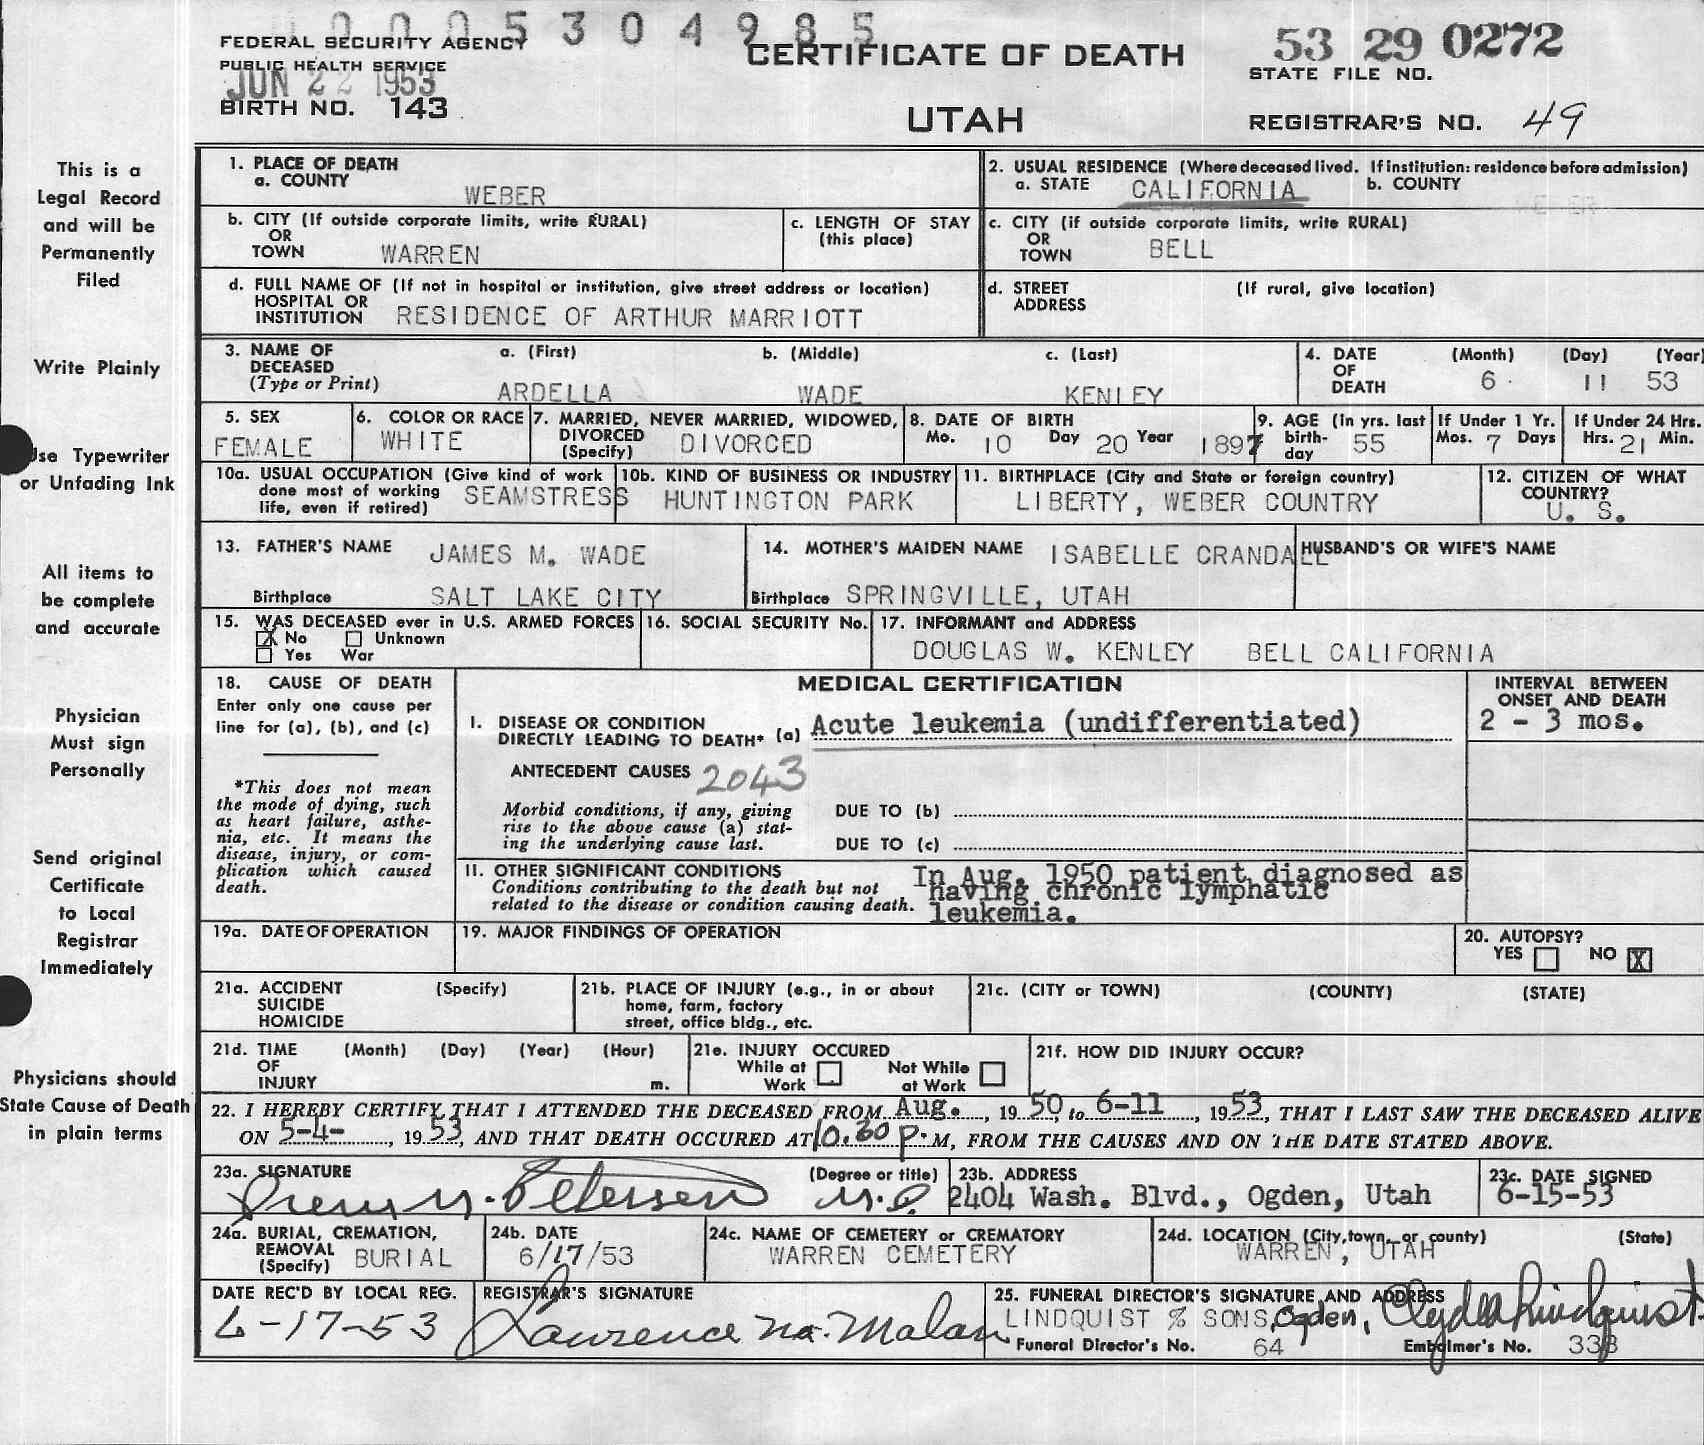 0005304985
FEDERAL SECURITY AGENCY
PUBLIC HEALTH SERVICE
JUN 22 1953
BIRTH NO. 143
CERTIFICATE OF DEATH
UTAH
53 29 0272
STATE FILE NO.
REGISTRAR'S NO. 49
This is a
Legal Record
and will be
Permanently
Filed
Write Plainly
Use Typewriter
or Unfading Ink
All items to
be complete
and accurate
Physician
Must sign
Personally
Send original
Certificate
to Local
Registrar
Immediately
Physicians should
State Cause of Death
in plain terms
1. PLACE OF DEATH
a. COUNTY WEBER
2. USUAL RESIDENCE (Where deceased lived. If institution: residence before admission)
a. STATE CALIFORNIA b. COUNTY
b. CITY (If outside corporate limits, write RURAL)
OR
TOWN WARREN
c. LENGTH OF STAY
(this place)
c. CITY (if outside corporate limits, write RURAL)
OR
TOWN BELL
d. FULL NAME OF (If not in hospital or institution, give street address or location)
HOSPITAL OR
INSTITUTION RESIDENCE OF ARTHUR MARRIOTT
d. STREET (If rural, give location)
ADDRESS
3. NAME OF
DECEASED
(Type or Print)
a. (First) b. (Middle) c. (Last)
ARDELLA WADE KENLEY
4. DATE
OF
DEATH
(Month) (Day) (Year)
6 11 53
5. SEX
FEMALE
6. COLOR OR RACE
WHITE
7. MARRIED, NEVER MARRIED, WIDOWED,
DIVORCED
(Specify) DIVORCED
8. DATE OF BIRTH
Mo. 10 Day 20 Year 1897
9. AGE (in yrs. last
birth-
day 55
If Under 1 Yr.
Mos. 7 Days
If Under 24 Hrs.
Hrs. 21 Min.
10a. USUAL OCCUPATION (Give kind of work
done most of working
life, even if retired) SEAMSTRESS
10b. KIND OF BUSINESS OR INDUSTRY
HUNTINGTON PARK
11. BIRTHPLACE (City and State or foreign country)
LIBERTY, WEBER COUNTRY
12. CITIZEN OF WHAT
COUNTRY?
U. S.
13. FATHER'S NAME JAMES M. WADE
Birthplace SALT LAKE CITY
14. MOTHER'S MAIDEN NAME ISABELLE CRANDALL
Birthplace SPRINGVILLE, UTAH
HUSBAND'S OR WIFE'S NAME
15. WAS DECEASED ever in U.S. ARMED FORCES
X No Unknown
Yes War
16. SOCIAL SECURITY No.
17. INFORMANT and ADDRESS
DOUGLAS W. KENLEY BELL CALIFORNIA
18. CAUSE OF DEATH
Enter only one cause per
line for (a), (b), and (c)
*This does not mean
the mode of dying, such
as heart failure, asthe-
nia, etc. It means the
disease, injury, or com-
plication which caused
death.
MEDICAL CERTIFICATION
I. DISEASE OR CONDITION
DIRECTLY LEADING TO DEATH* (a) Acute leukemia (undifferentiated)
INTERVAL BETWEEN
ONSET AND DEATH
2 - 3 mos.
ANTECEDENT CAUSES 2043
Morbid conditions, if any, giving
rise to the above cause (a) stat-
ing the underlying cause last.
DUE TO (b)
DUE TO (c)
11. OTHER SIGNIFICANT CONDITIONS
Conditions contributing to the death but not
related to the disease or condition causing death.
In Aug. 1950 patient diagnosed as
having chronic lymphatic
leukemia.
19a. DATE OF OPERATION
19. MAJOR FINDINGS OF OPERATION
20. AUTOPSY?
YES NO X
21a. ACCIDENT (Specify)
SUICIDE
HOMICIDE
21b. PLACE OF INJURY (e.g., in or about
home, farm, factory
street, office bldg., etc.
21c. (CITY or TOWN) (COUNTY) (STATE)
21d. TIME (Month) (Day) (Year) (Hour)
OF
INJURY m.
21e. INJURY OCCURED
While at Work Not While at Work
21f. HOW DID INJURY OCCUR?
22. I HEREBY CERTIFY THAT I ATTENDED THE DECEASED FROM Aug., 1950, to 6-11, 1953, THAT I LAST SAW THE DECEASED ALIVE
ON 5-4-, 1953, AND THAT DEATH OCCURED AT 10:30 P.M, FROM THE CAUSES AND ON THE DATE STATED ABOVE.
23a. SIGNATURE (Degree or title)
Petersen M.D.
23b. ADDRESS
2404 Wash. Blvd., Ogden, Utah
23c. DATE SIGNED
6-15-53
24a. BURIAL, CREMATION,
REMOVAL
(Specify) BURIAL
24b. DATE
6/17/53
24c. NAME OF CEMETERY or CREMATORY
WARREN CEMETERY
24d. LOCATION (City, town, or county) (State)
WARREN, UTAH
DATE REC'D BY LOCAL REG.
6-17-53
REGISTRAR'S SIGNATURE
Lawrence M. Malan
25. FUNERAL DIRECTOR'S SIGNATURE AND ADDRESS
LINDQUIST % SONS, Ogden, Clyde Lindquist
Funeral Director's No. 64 Embalmer's No. 333